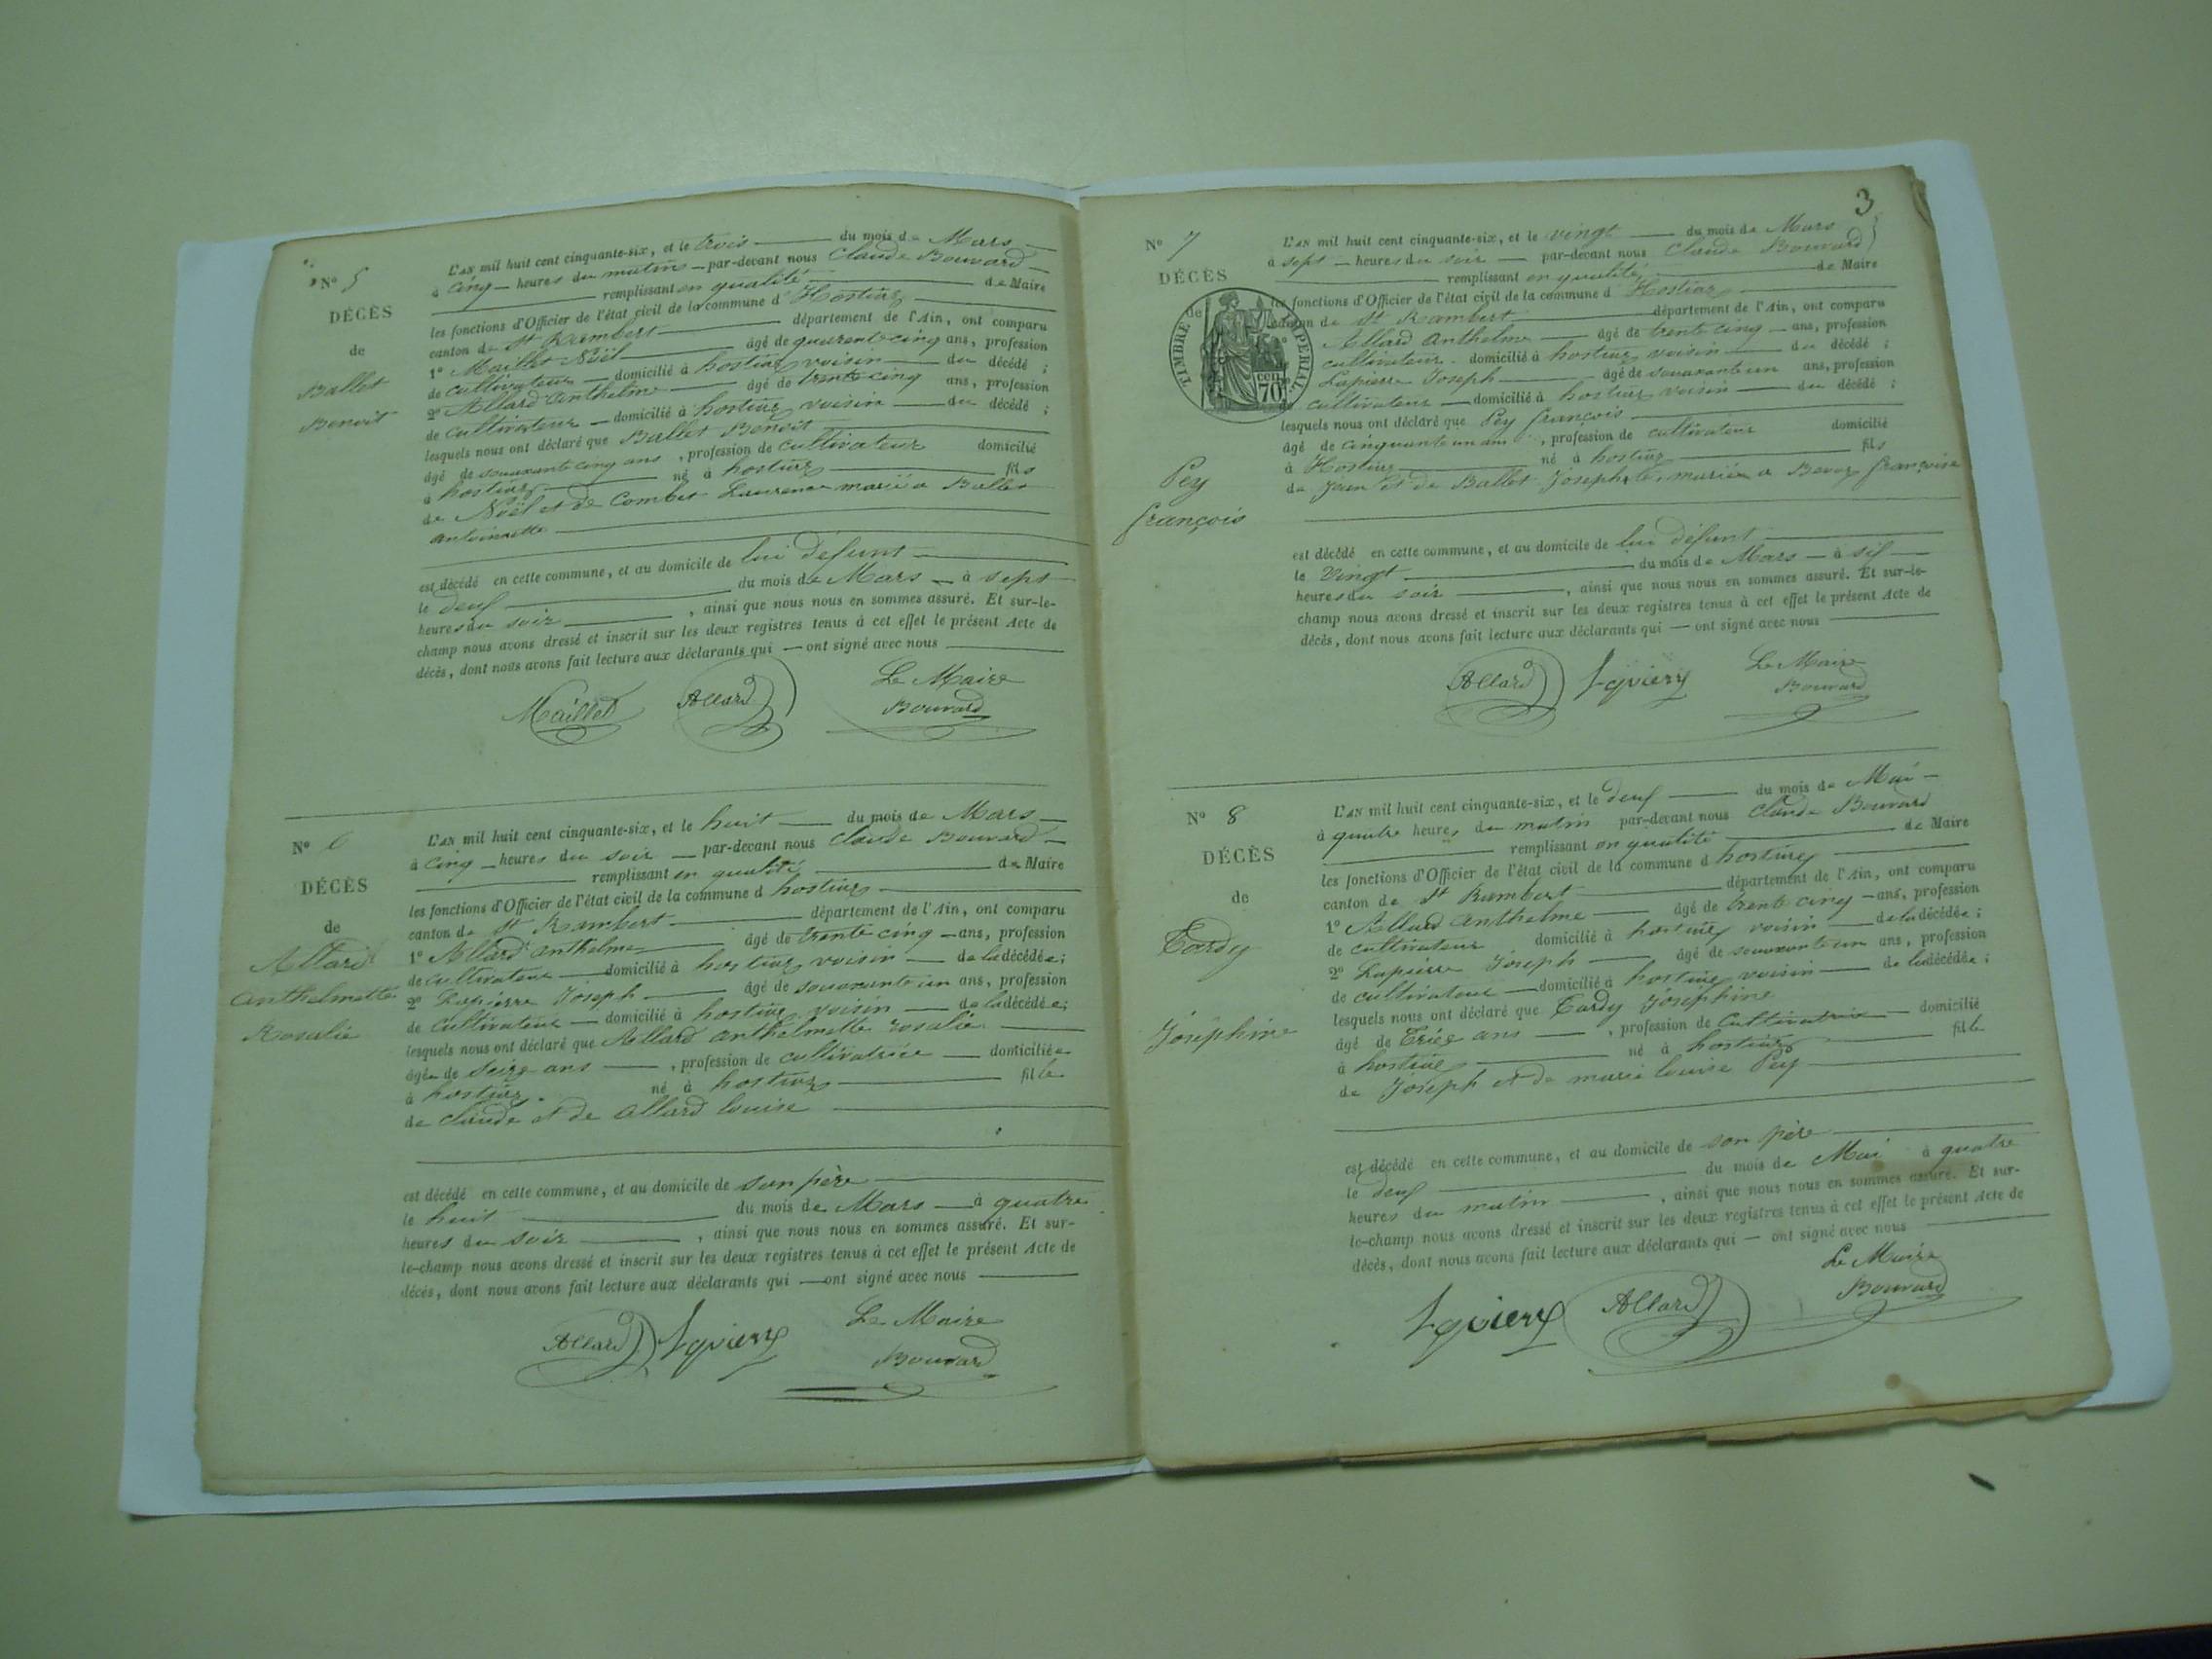 N° 5
DÉCÈS
de
Ballet
Benoit
L'AN mil huit cent cinquante-six, et le trois du mois de Mars
à cinq heures du matin par-devant nous Claude Bouvard
remplissant en qualité de Maire
les fonctions d'Officier de l'état civil de la commune d'Hostiaz
canton de St Rambert département de l'Ain, ont comparu
1° Maillet Noël âgé de quarente cinq ans, profession
de cultivateur domicilié à hostiaz voisin du décédé ;
2° Allard anthelme âgé de trente cinq ans, profession
de cultivateur domicilié à hostiaz voisin du décédé ;
lesquels nous ont déclaré que Ballet Benoit
âgé de souaxante cinq ans, profession de cultivateur domicilié
à hostiaz né à hostiaz fils
de Noël et de Combet Laurence marié à Ballet
antoinette
est décédé en cette commune, et au domicile de lui défunt
le deux du mois de Mars à sept
heures du soir, ainsi que nous nous en sommes assuré. Et sur-le-
champ nous avons dressé et inscrit sur les deux registres tenus à cet effet le présent Acte de
décès, dont nous avons fait lecture aux déclarants qui ont signé avec nous
Maillet Allard Le Maire
Bouvard
N° 6
DÉCÈS
de
Allard
Anthelmette
Rosalie
L'AN mil huit cent cinquante-six, et le huit du mois de Mars
à cinq heures du soir par-devant nous Claude Bouvard
remplissant en qualité de Maire
les fonctions d'Officier de l'état civil de la commune d hostiaz
canton de St Rambert département de l'Ain, ont comparu
1° Allard anthelme âgé de trente cinq ans, profession
de cultivateur domicilié à hostiaz voisin de la décédée ;
2° Lapierre Joseph âgé de souaxante un ans, profession
de cultivateur domicilié à hostiaz voisin de la décédée ;
lesquels nous ont déclaré que Allard anthelmette rosalie
âgée de seize ans, profession de cultivatrice domiciliée
à hostiaz né à hostiaz fille
de claude et de allard louise
est décédé en cette commune, et au domicile de son père
le huit du mois de Mars à quatre
heures du soir, ainsi que nous nous en sommes assuré. Et sur-
le-champ nous avons dressé et inscrit sur les deux registres tenus à cet effet le présent Acte de
décès, dont nous avons fait lecture aux déclarants qui ont signé avec nous
Allard Le Maire
Bouvard
3
N° 7
DÉCÈS
de
TIMBRE IMPERIAL
70 cen
Pey
françois
L'AN mil huit cent cinquante-six, et le vingt du mois de Mars
à sept heures du soir par-devant nous Claude Bouvard
remplissant en qualité de Maire
les fonctions d'Officier de l'état civil de la commune d Hostiaz
canton de St Rambert département de l'Ain, ont comparu
Allard anthelme âgé de trente cinq ans, profession
cultivateur domicilié à hostiaz voisin du décédé ;
Lapierre Joseph âgé de souaxante un ans, profession
de cultivateur domicilié à hostiaz voisin du décédé ;
lesquels nous ont déclaré que Pey françois
âgé de cinquante un ans, profession de cultivateur domicilié
à Hostiaz né à hostiaz fils
de Jean et de Ballet Josephte, marié a françoise
est décédé en cette commune, et au domicile de lui défunt
le Vingt du mois de Mars à six
heures du soir, ainsi que nous nous en sommes assuré. Et sur-le-
champ nous avons dressé et inscrit sur les deux registres tenus à cet effet le présent Acte de
décès, dont nous avons fait lecture aux déclarants qui ont signé avec nous
Allard Le Maire
Bouvard
N° 8
DÉCÈS
de
Tardy
Joséphine
L'AN mil huit cent cinquante-six, et le deux du mois de Mai
à quatre heures du matin par-devant nous Claude Bouvard
remplissant en qualité de Maire
les fonctions d'Officier de l'état civil de la commune d hostiaz
canton de St Rambert département de l'Ain, ont comparu
1° Allard Anthelme âgé de trente cinq ans, profession
de cultivateur domicilié à hostiaz voisin de la décédée ;
2° Lapierre Joseph âgé de souaxante un ans, profession
de cultivateur domicilié à hostiaz voisin de la décédée ;
lesquels nous ont déclaré que Tardy Joséphine
âgé de treize ans, profession de Cultivatrice domicilié
à hostiaz né à hostiaz fille
de Joseph et de marie louise Pey
est décédé en cette commune, et au domicile de son père
le deux du mois de Mai à quatre
heures du matin, ainsi que nous nous en sommes assuré. Et sur-
le-champ nous avons dressé et inscrit sur les deux registres tenus à cet effet le présent Acte de
décès, dont nous avons fait lecture aux déclarants qui ont signé avec nous
Allard Le Maire
Bouvard